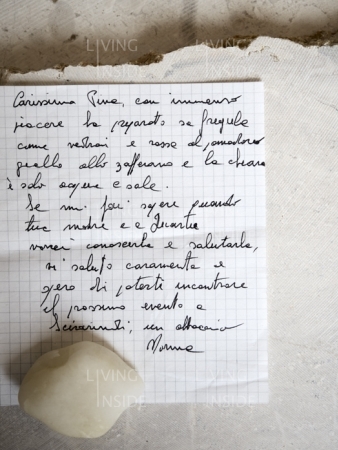 LIVING INSIDE
Carissima Pina, con immenso
piacere ho preparato sa fregula
come vedrai e rossa al pomodoro
gialla allo zafferano e la chiara
è solo acqua e sale.
Se mi fai sapere quando
tua madre e a Quartu
vorrei conoscerla e salutarla,
vi saluto caramente e
spero di poterti incontrare
il prossimo evento a
un abbraccio
Norma
LIVING INSIDE